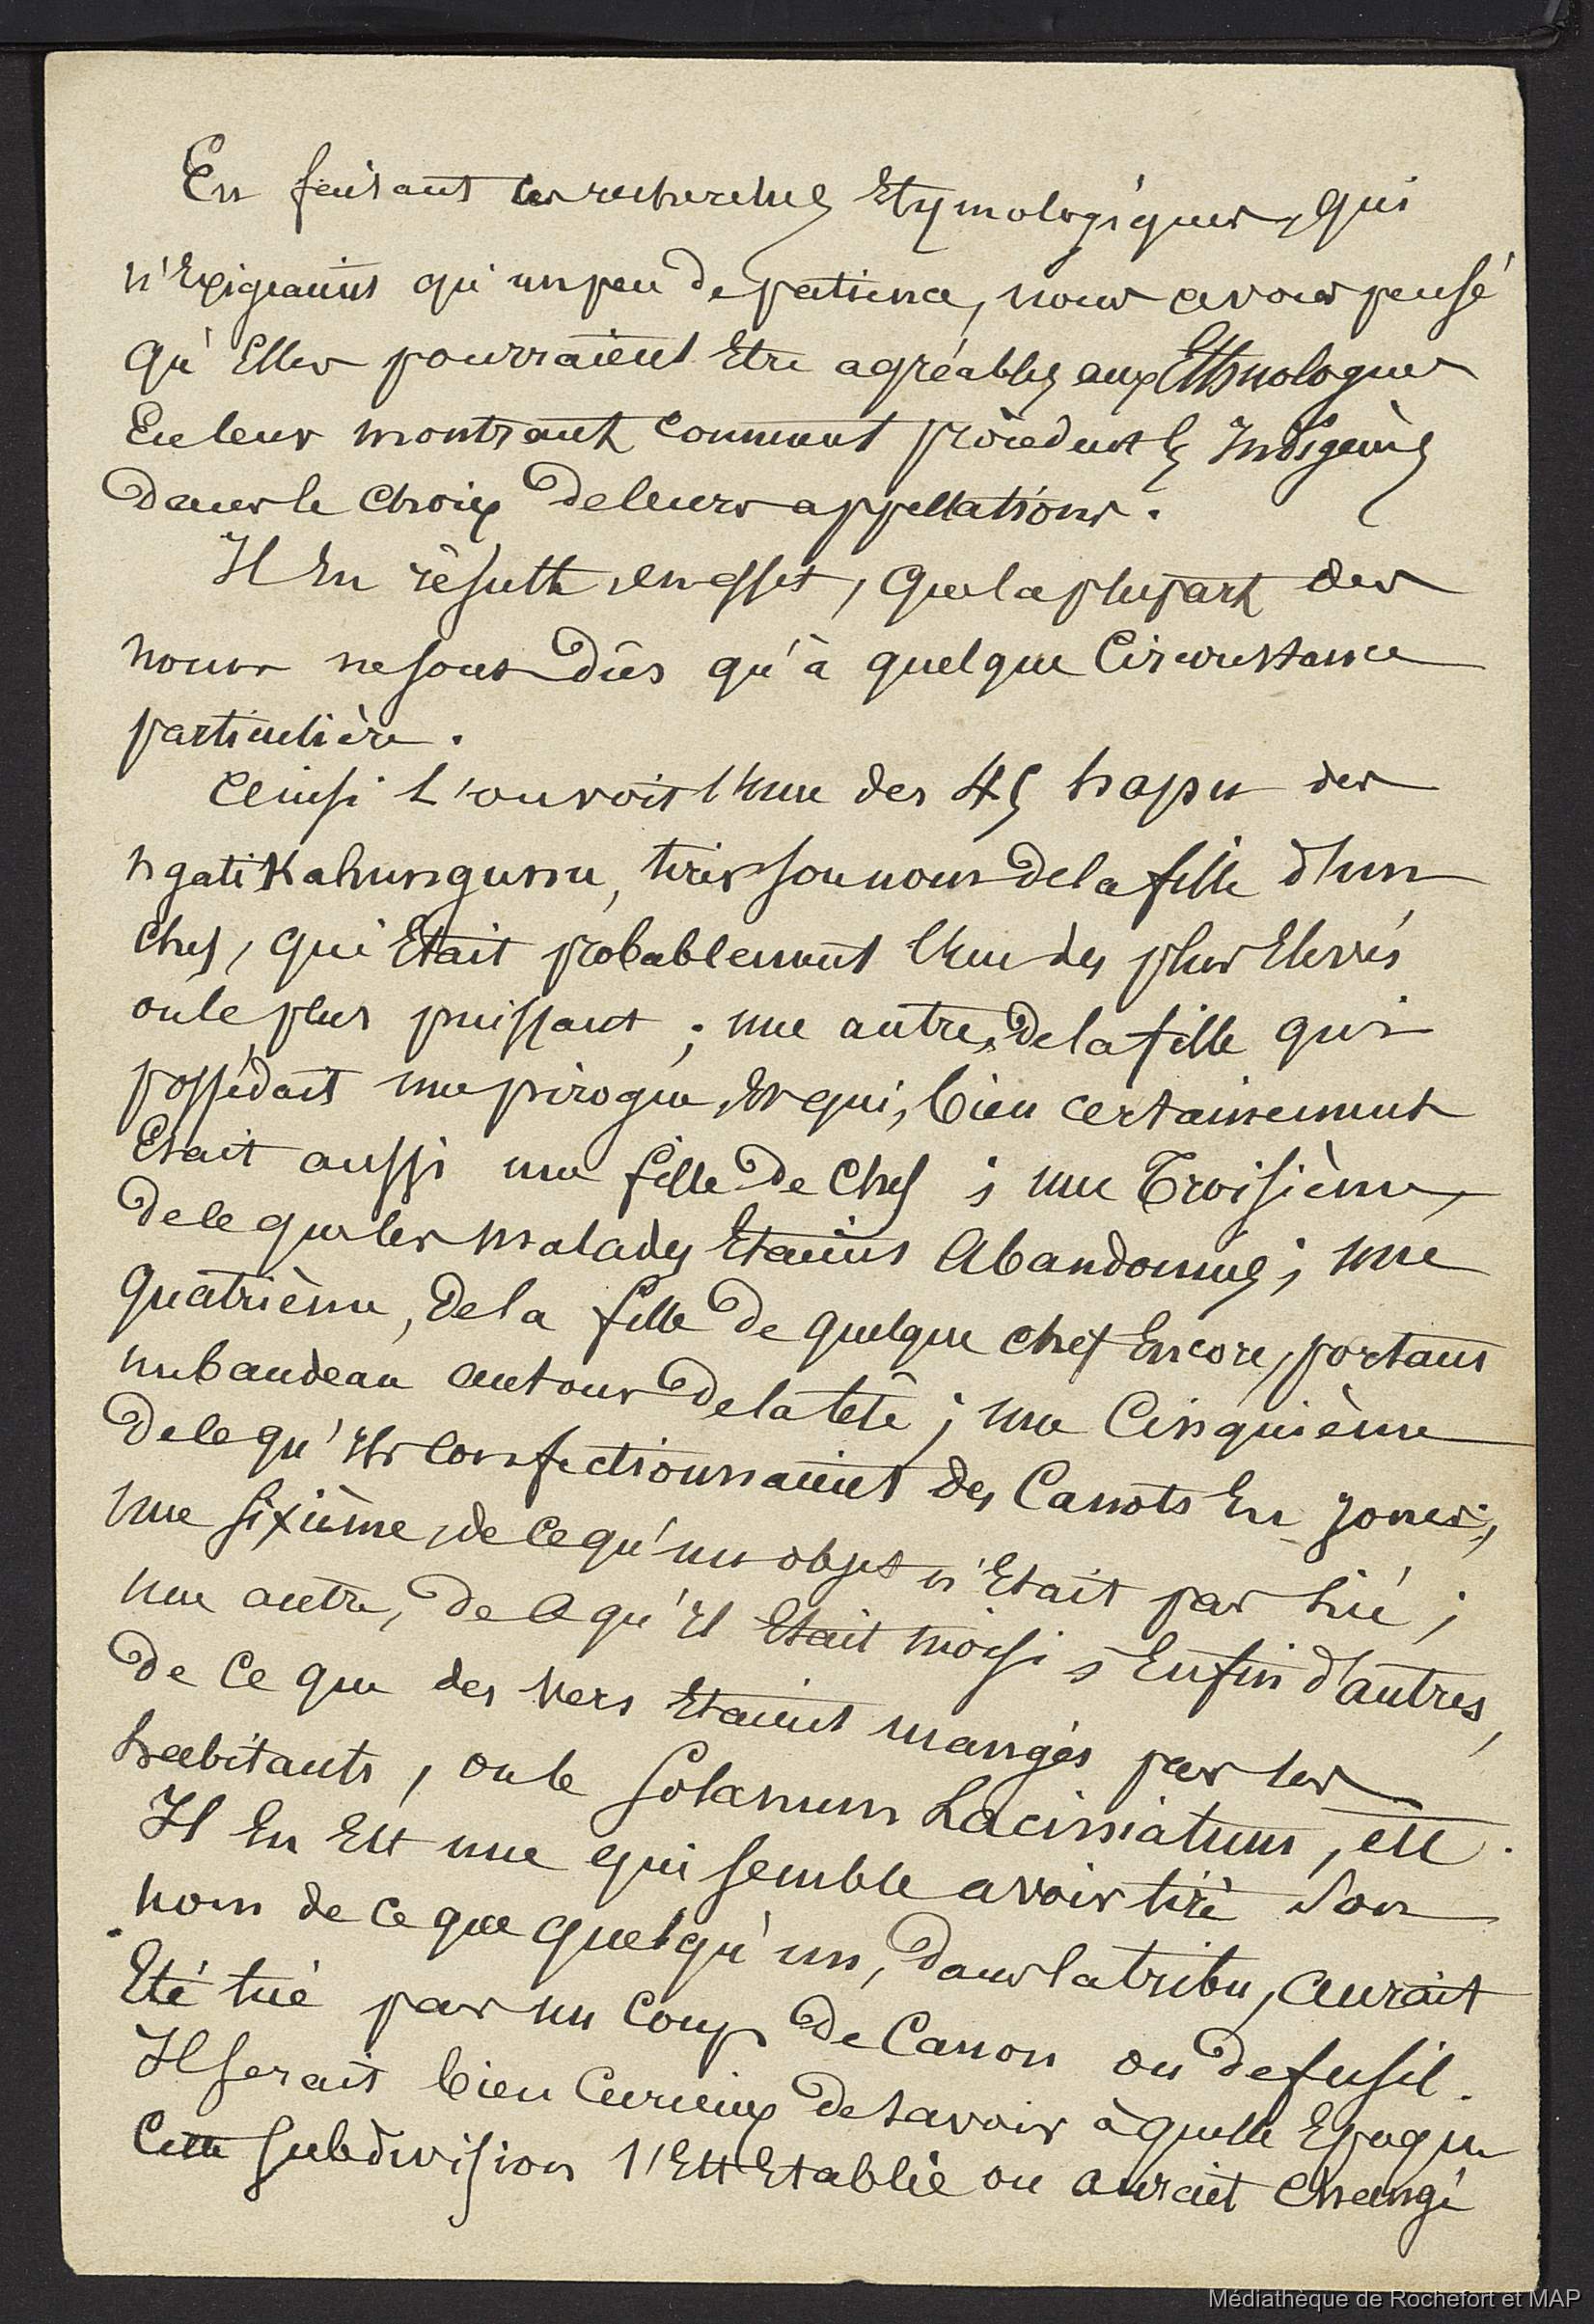 En faisant ces recherches Etymologiques, qui
n'Exigeaient qu'un peu de patience, nous avons pensé
qu'Elles pourraient Etre agréables aux Ethnologues
En leur montrant comment procèdent les Indigènes
dans le choix de leurs appellations.
Il En résulte, en effet, que la plupart des
noms ne sont dûs qu'à quelque Circonstance
particulière.
Ainsi l'on voit l'une des 45 hapu des
ngatiKahungunu, tirer son nom de la fille d'un
chef, qui Etait probablement l'un des plus Elevés
ou le plus puissant ; une autre, de la fille qui
possédait une pirogue, Et qui, bien certainement
Etait aussi une fille de chef ; une Troisième,
de ce que les malades Etaient Abandonnés ; une
quatrième, de la fille de quelque chef Encore, portant
un bandeau autour de la tête ; une Cinquième
de ce qu'ils confectionnaient des Canots En joncs ;
une sixième, de ce qu'un objet n'Etait pas lié ;
une autre, de ce qu'il Etait moisi ; Enfin d'autres,
de ce que des vers Etaient mangés par les
habitants, ou le Solanum Laciniatum, etc.
Il En Est une qui semble avoir tiré son
nom de ce que quelqu'un, dans la tribu, aurait
Eté tué par un coup de Canon ou de fusil.
Il serait bien curieux de savoir à quelle Epoque
Cette subdivision s'Est Etablie ou aurait changé
Médiathèque de Rochefort et MAP